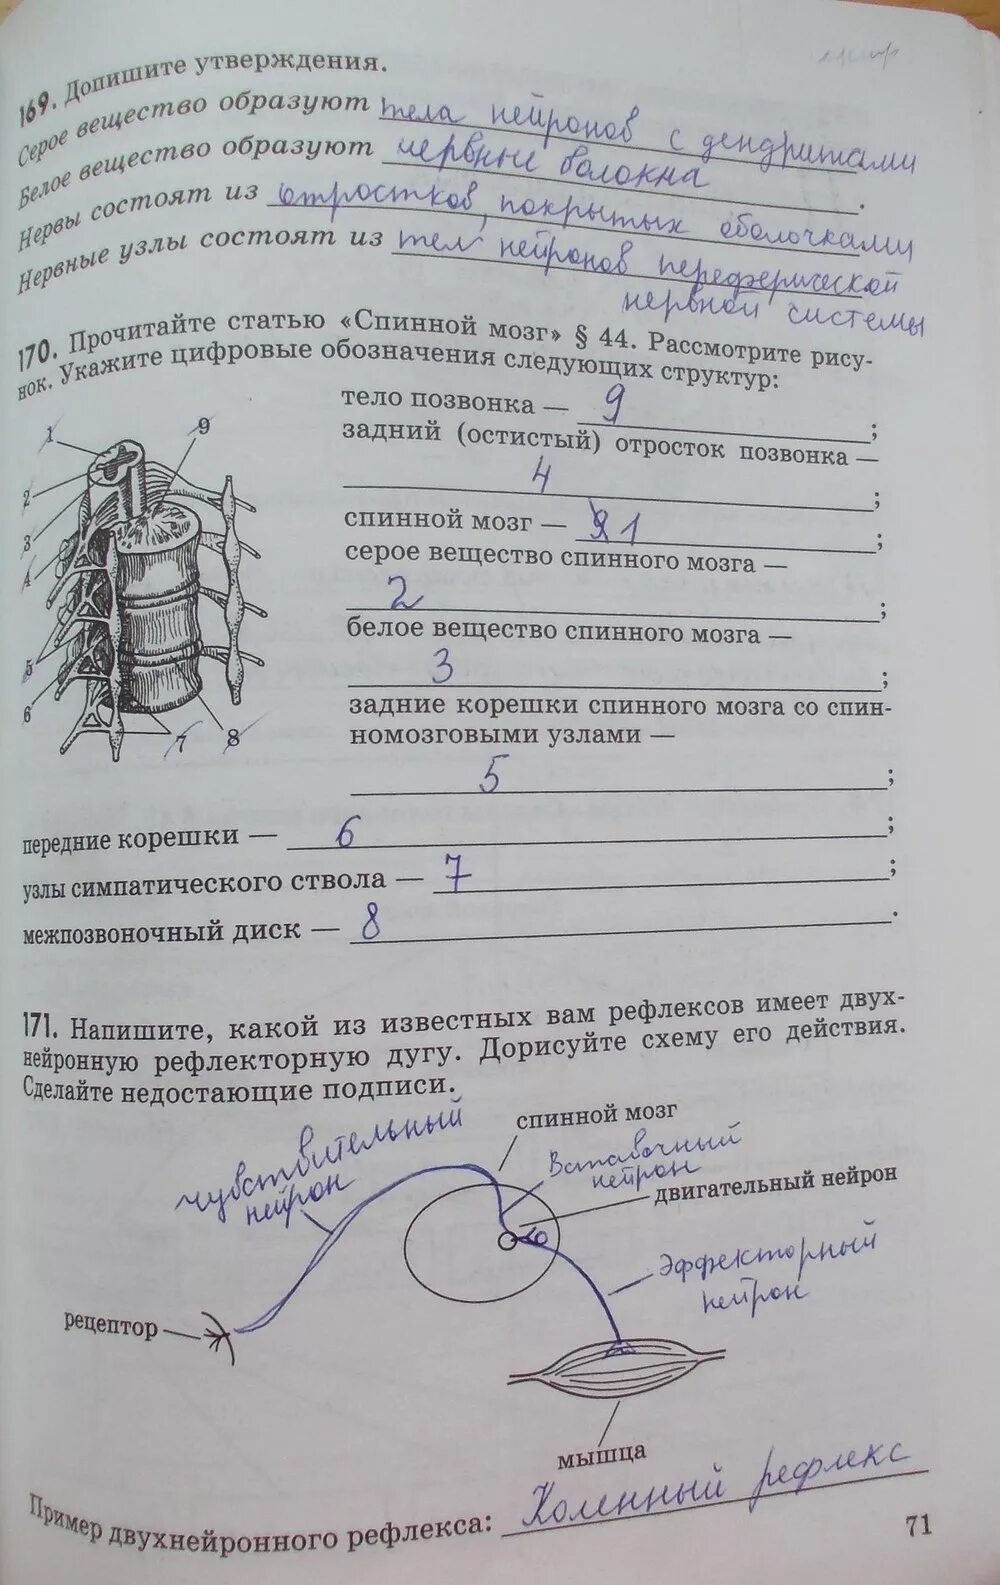 169. Допишите утверждения.
Серое вещество образуют тела нейронов с дендритами
Белое вещество образуют нервные волокна.
Нервы состоят из отростков, покрытых оболочками
Нервные узлы состоят из тел нейронов переферической
нервной системы
170. Прочитайте статью «Спинной мозг» § 44. Рассмотрите рису-
нок. Укажите цифровые обозначения следующих структур:
1
9
2
3
4
5
6
7
8
тело позвонка — 9;
задний (остистый) отросток позвонка —
4;
спинной мозг — 1;
серое вещество спинного мозга —
2;
белое вещество спинного мозга —
3;
задние корешки спинного мозга со спин-
номозговыми узлами —
5;
передние корешки — 6;
узлы симпатического ствола — 7;
межпозвоночный диск — 8.
171. Напишите, какой из известных вам рефлексов имеет двух-
нейронную рефлекторную дугу. Дорисуйте схему его действия.
Сделайте недостающие подписи.
спинной мозг
чувствительный
нейрон
Вставочный
нейрон
двигательный нейрон
Эффекторный
нейрон
рецептор
мышца
Пример двухнейронного рефлекса: Коленный рефлекс
71